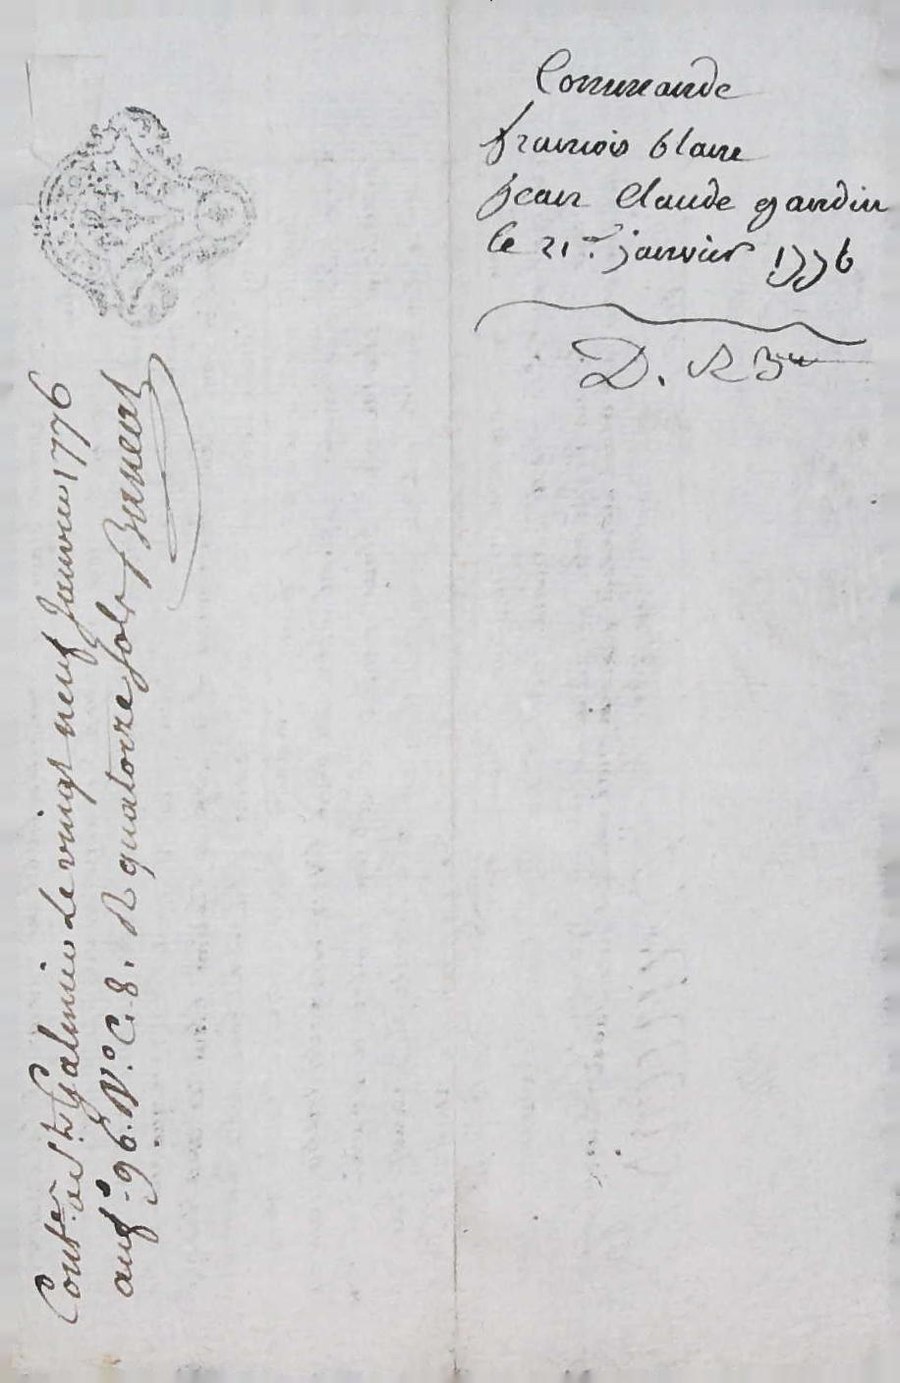 Commande
francois blanc
jean Claude gandin
le 21.er janvier 1776
D. R
Contr. a St. Galmier Le vingt neuf Janvier 1776
au f.o 96. N.o C. 8. R quatorze sols